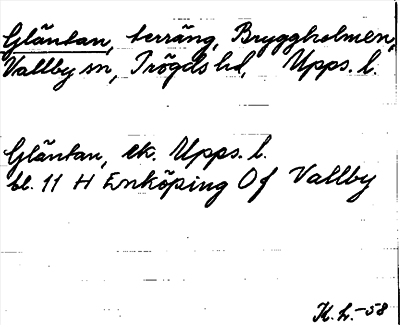 Gläntan, terräng, Bryggholmen,
Vallby sn, Trögds hd, Upps. l.
Gläntan, ek. Upps. l.
bl. 11 H Enköping Of Vallby
K. L. -58